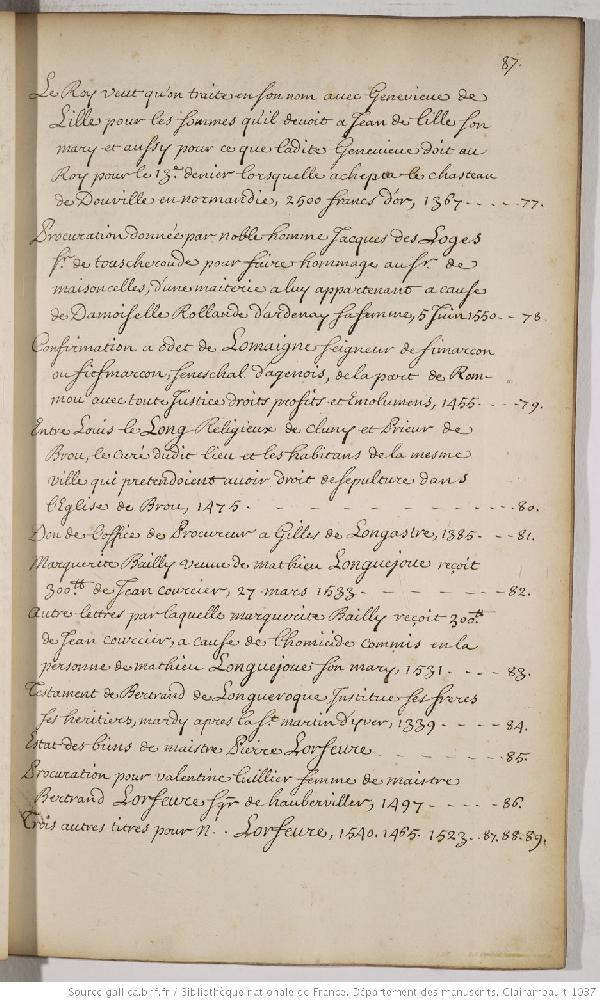 87.
Le Roy veut qu'on traite en son nom avec Genevieve de
Lille pour les sommes qu'il devoit a Jean de lille son
mary et aussy pour ce que ladite Genevieve doit au
Roy pour le 13.e denier lorsquelle achepta le chasteau
de Douville en normandie, 2500 francs d'or, 1367 - - - - - 77.
Procuration donnée par noble homme Jacques des Loges
sr. de touscheronde pour faire hommage au sr. de
maisoncelles, d'une maiterie a luy appartenant a cause
de Damoiselle Rollande d'ardenay sa femme, 5 Juin 1550 - - 78.
Confirmation a odet de Lomaigne seigneur de fimarcon
ou fiesmarcon, seneschal d'agenois, de la part de Rom-
mou avec toute Justice droits profits et Emolumens, 1455 - - - 79.
Entre Louis le Long Religieux de Cluny et Prieur de
Brou, le curé dudit lieu et les habitans de la mesme
ville qui pretendoient avoir droit de sepulture dans
l'Eglise de Brou, 1475 - - - - - - - - 80.
Don de l'office de Procureur a Gilles de Longastre, 1385 - - 81.
Marguerite Bailly veuve de mathieu Longuejoue reçoit
300.tt de Jean courcier, 27 mars 1533 - - - - - - 82.
autre lettres par laquelle marguerite Bailly reçoit 300.tt
de Jean courcier, a cause de l'homicide commis en la
personne de mathieu Longuejoue son mary, 1531 - - - - 83.
Testament de Bertrand de Longueroque Institue ses freres
ses heritiers, mardy apres la st. martin d'yver, 1339 - - - - 84.
Estat des biens de maistre Pierre Lorfeure - - - - - - 85.
Procuration pour valentine luillier femme de maistre
Bertrand Lorfeure sgr de hauberviller, 1497 - - - - - 86.
Trois autres titres pour N. . Lorfeure, 1540. 1465. 1523 - . 87. 88. 89.
Source gallica.bnf.fr / Bibliothèque nationale de France. Département des manuscrits. Clairambault 1037